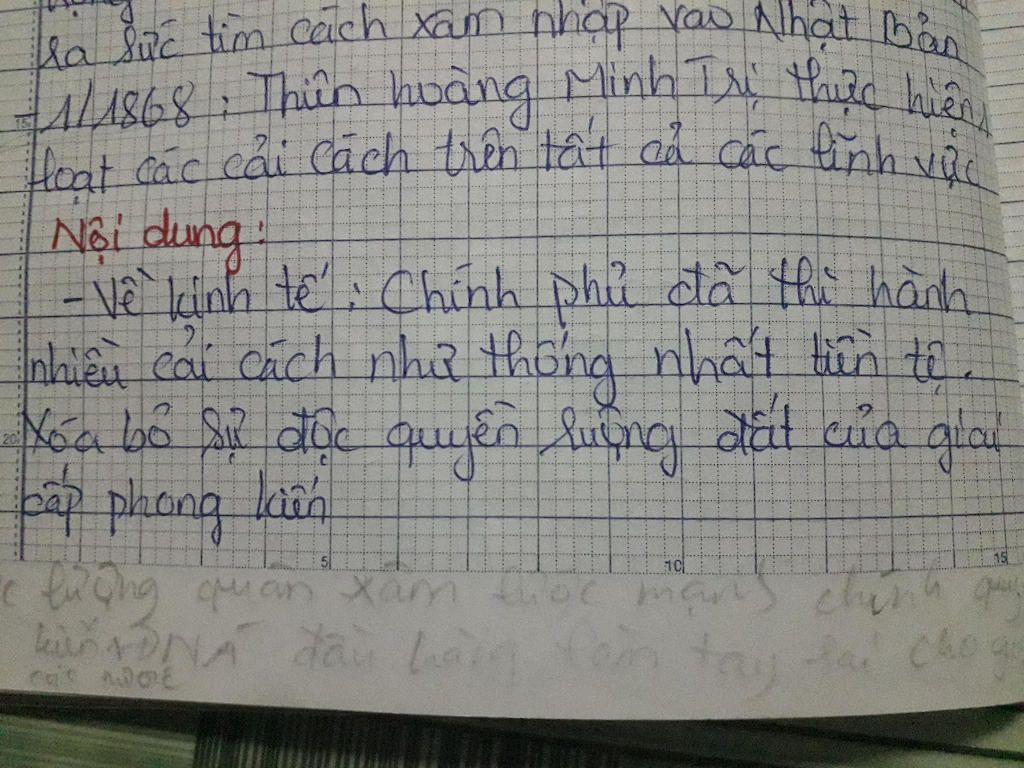 ra sức tìm cách xâm nhập vào Nhật Bản
1/1868: Thiên hoàng Minh Trị thực hiện
loạt các cải cách trên tất cả các lĩnh vực
Nội dung:
- Về kinh tế: Chính phủ đã thi hành
nhiều cải cách như thống nhất tiền tệ.
Xóa bỏ sự độc quyền ruộng đất của giai
cấp phong kiến
5 10 15
lượng quân xâm lược mạnh chính quy
đầu hàng làm tay sai cho
các nước
15
20